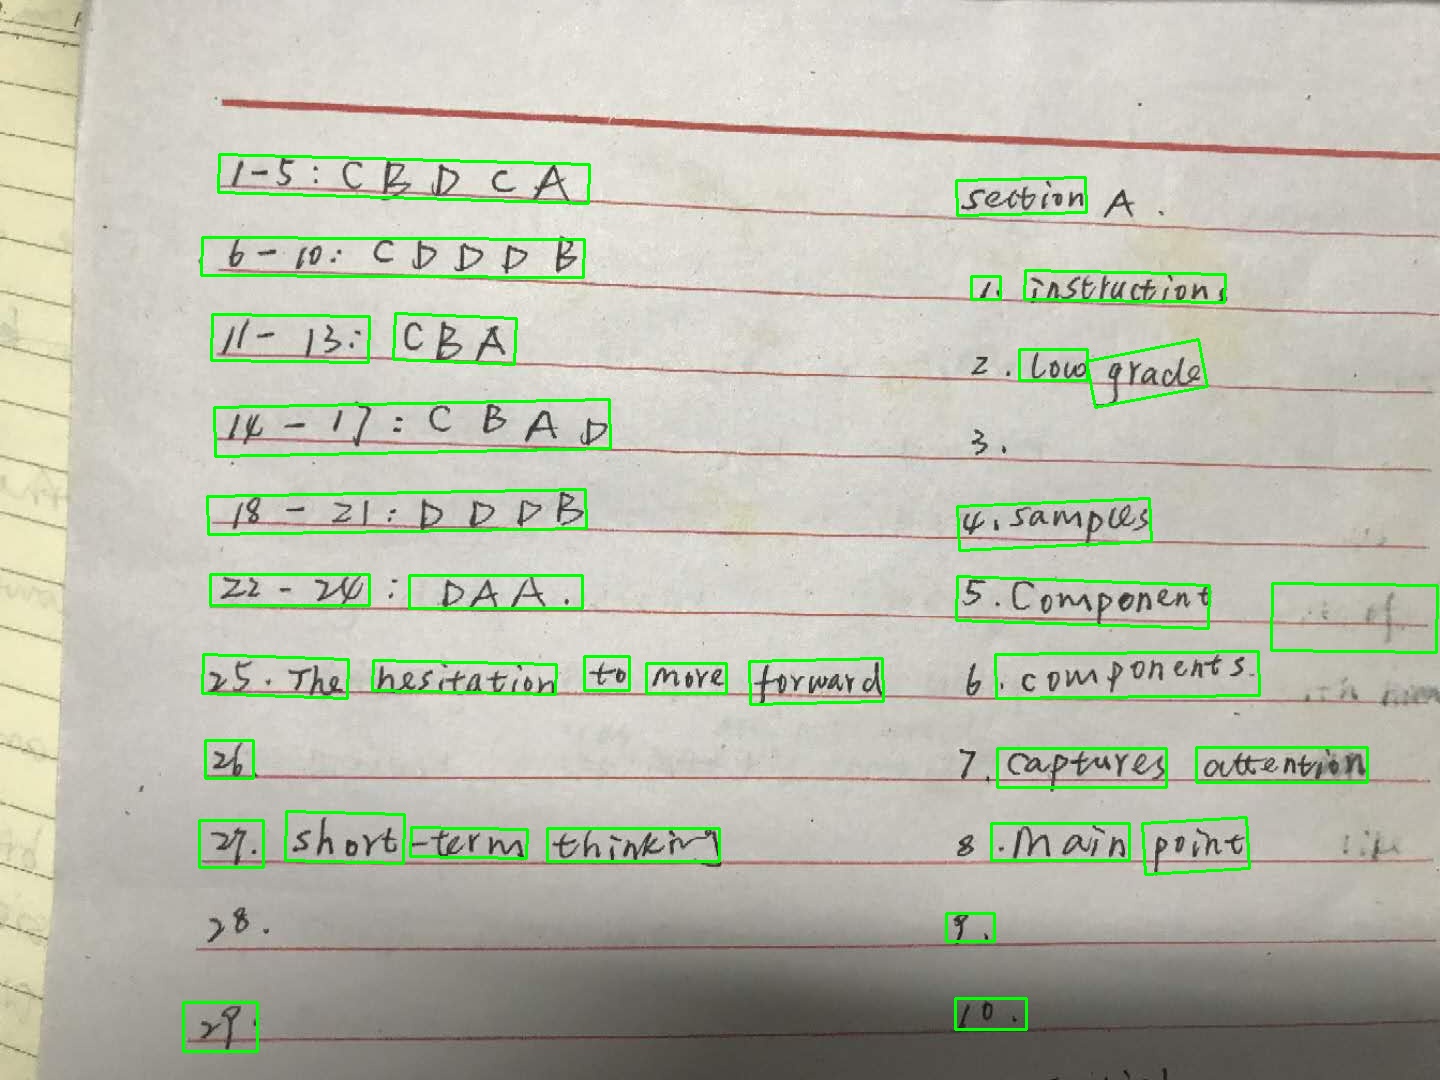 1-5: C B D C A
6-10: C D D D B
11-13: C B A
14-17: C B A D
18-21: D D D B
22-24: D A A.
25. The hesitation to more forward
26.
27. short-term thinking
28.
29.
section A.
1. instructions
2. low grade
3.
4. samples
5. Component
6. components.
7. captures attention
8. Main point
9.
10.